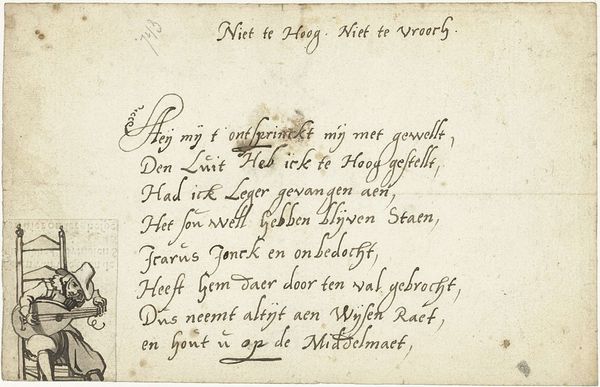 Niet te Hoog. Niet te vrooch.
Heij mij t ontsprinckt mij met gewellt,
Den Luit Heb ick te Hoog gestellt,
Had ick Leger gevangen aen,
Het sou well hebben blijven Staen,
Icarus Jonck en onbedocht,
Heeft hem daer door ten val gebrocht,
Dus neemt altijt aen Wijsen Raet,
en hout u op de Middelmaet,